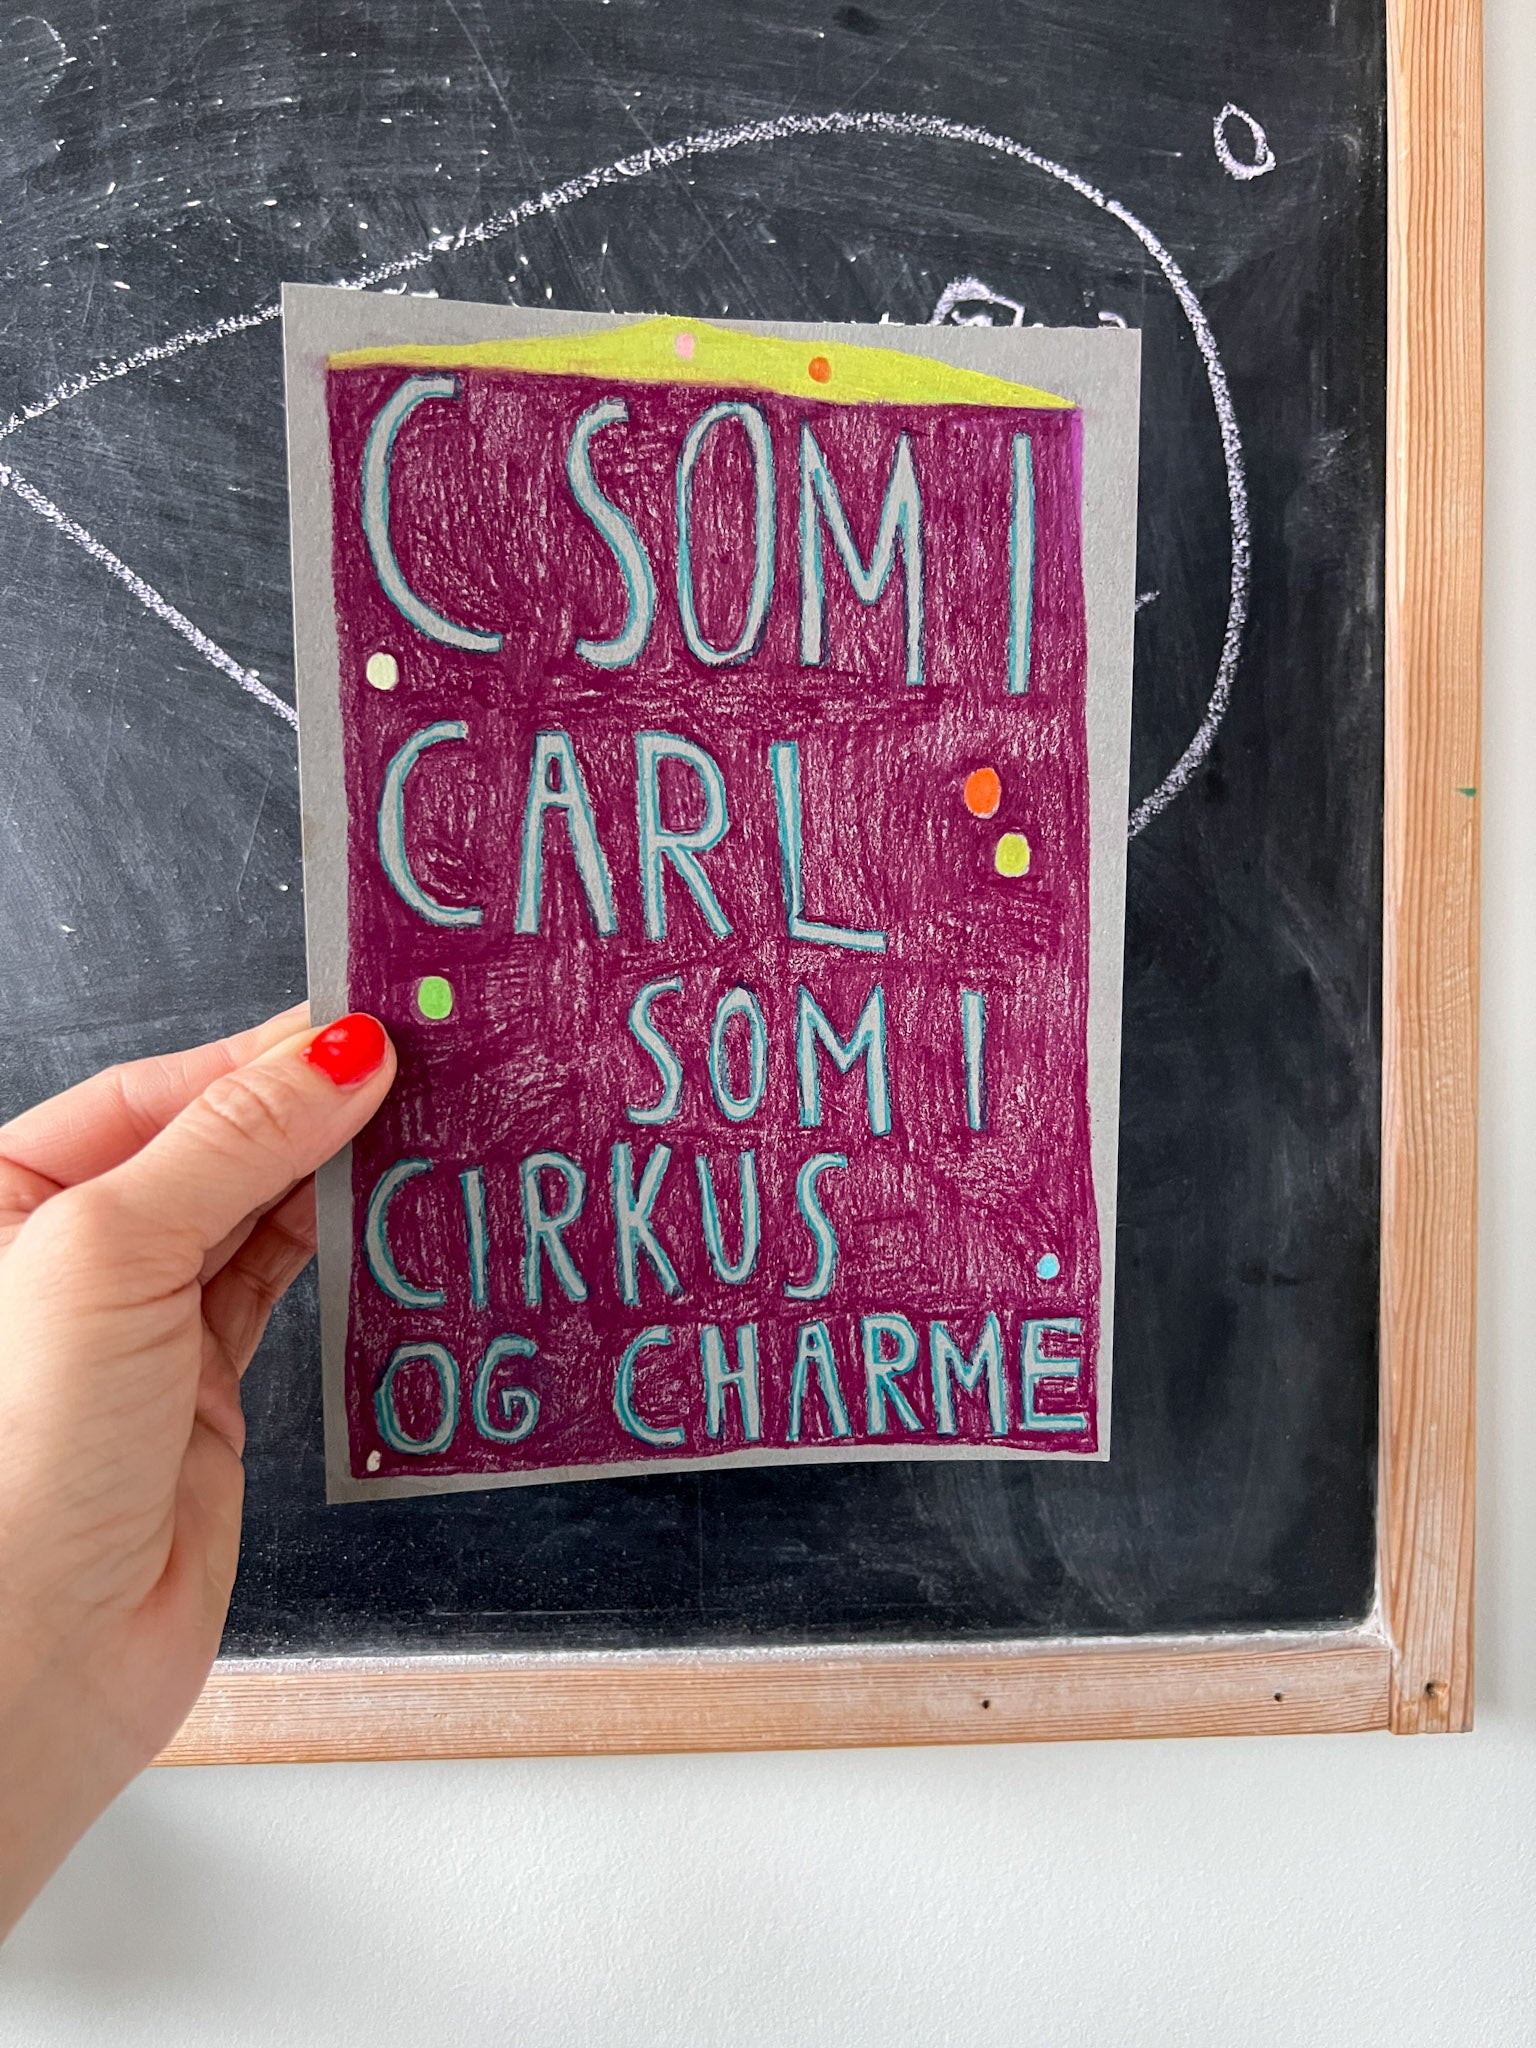 C SOM I
CARL
SOM I
CIRKUS
OG CHARME